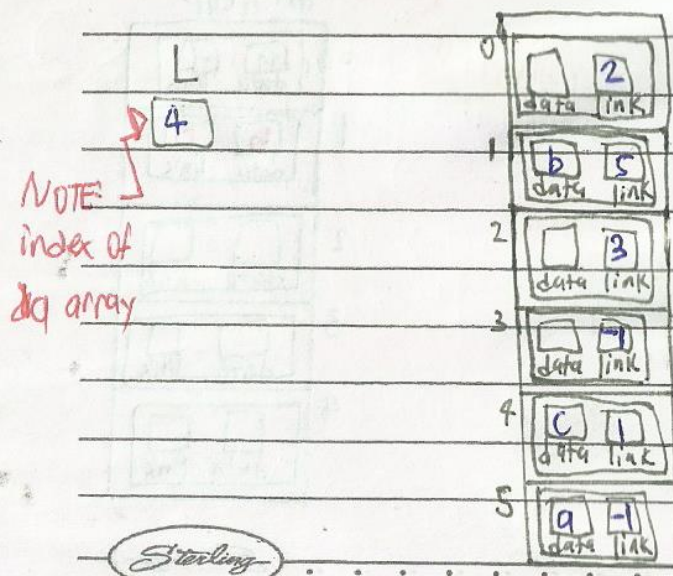 L
4
NOTE:
index of
array
0
2
data link
1
b 5
data link
2
3
data link
3
-1
data link
4
C 1
data link
5
a -1
data link
Sterling